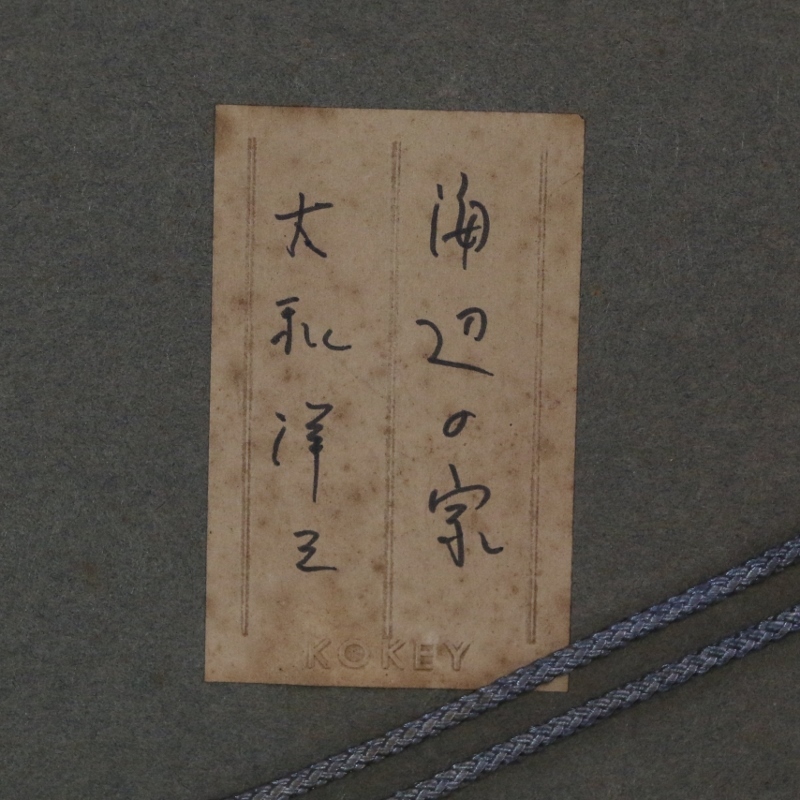 海辺の家
大和洋三
KOKEY